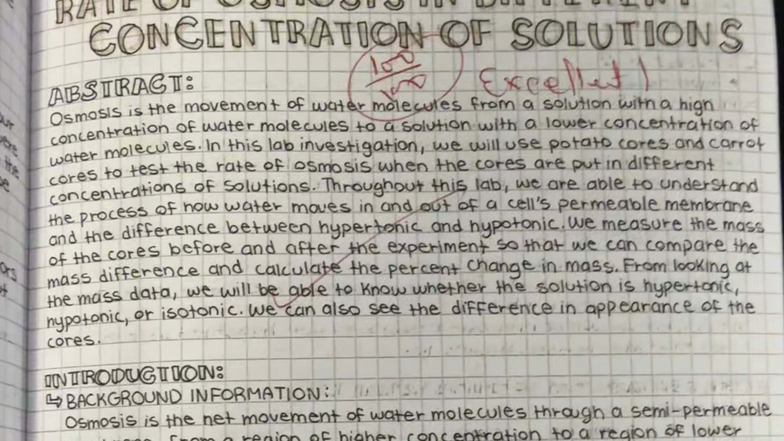 RATE OF OSMOSIS IN DIFFERENT
CONCENTRATION OF SOLUTIONS
100
100
Excellent!
ABSTRACT:
Osmosis is the movement of water molecules from a solution with a high
concentration of water molecules to a solution with a lower concentration of
water molecules. In this lab investigation, we will use potato cores and carrot
cores to test the rate of osmosis when the cores are put in different
concentrations of solutions. Throughout this lab, we are able to understand
the process of how water moves in and out of a cell's permeable membrane
and the difference between hypertonic and hypotonic. We measure the mass
of the cores before and after the experiment so that we can compare the
mass difference and calculate the percent change in mass. From looking at
the mass data, we will be able to know whether the solution is hypertonic,
hypotonic, or isotonic. We can also see the difference in appearance of the
cores.
INTRODUCTION:
↳ BACKGROUND INFORMATION:
Osmosis is the net movement of water molecules through a semi-permeable
from a region of higher concentration to a region of lower